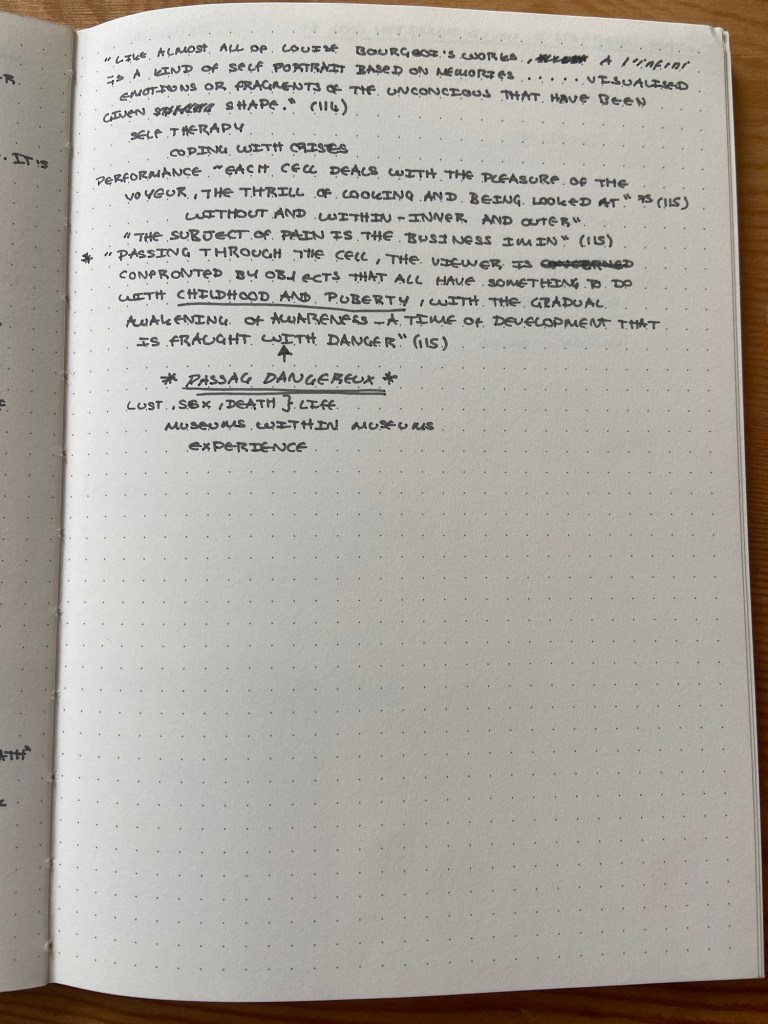 "LIKE ALMOST ALL OF LOUISE BOURGEOI'S WORKS, A L'INFINI
IS A KIND OF SELF PORTRAIT BASED ON MEMORIES ..... VISUALISED
EMOTIONS OR FRAGMENTS OF THE UNCONCIOUS THAT HAVE BEEN
GIVEN SHAPE." (114)
SELF THERAPY
COPING WITH CRISES
PERFORMANCE "EACH CELL DEALS WITH THE PLEASURE OF THE
VOYEUR, THE THRILL OF LOOKING AND BEING LOOKED AT" 75 (115)
WITHOUT AND WITHIN - INNER AND OUTER"
"THE SUBJECT OF PAIN IS THE BUSINESS IM IN" (115)
* "PASSING THROUGH THE CELL, THE VIEWER IS CONCERNED
CONFRONTED BY OBJECTS THAT ALL HAVE SOMETHING TO DO
WITH CHILDHOOD AND PUBERTY, WITH THE GRADUAL
AWAKENING OF AWARENESS - A TIME OF DEVELOPMENT THAT
IS FRAUGHT WITH DANGER" (115)
* PASSAG DANGEREUX *
LUST, SEX, DEATH } LIFE
MUSEUMS WITHIN MUSEUMS
EXPERIENCE
R
. IT'S
ATH"